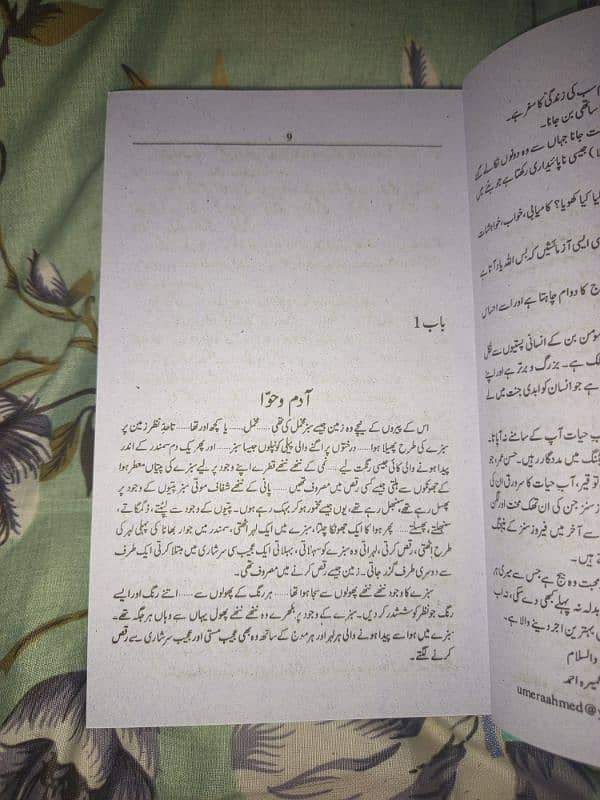 9
باب 1
آدم و حوّا
اس کے پیروں کے نیچے وہ زمین جیسے سبز مخمل کی تھی ..... مخمل ..... یا کچھ اور تھا ..... تاحدِ نظر زمین پر
سبزے کی طرح پھیلا ہوا ..... درختوں پر اگنے والی پہلی کونپلوں جیسا سبز ..... اور پھر یک دم سمندر کے اندر
پیدا ہونے والی کائی جیسی رنگت لیے ..... نمی کے ننھے ننھے قطرے اپنے وجود پر لیے سبزے کی پتیاں معطر ہوا
کے جھونکوں سے ہلتی جیسے کسی رقص میں مصروف تھیں ..... پانی کے ننھے شفاف موتی سبز پتیوں کے وجود پر
پھسل رہے تھے، سنبھل رہے تھے، یوں جیسے مخمور ہو کر بہک رہے ہوں۔ پتیوں کے وجود سے لپٹتے، ڈگمگاتے،
سنبھلتے، پھسلتے ..... پھر ہوا کا ایک جھونکا چلتا، سبزے میں ایک لہر اٹھتی، سمندر میں جوار بھاٹا کی پہلی لہر کی
طرح اٹھتی، رقص کرتی، لہراتی وہ سبزے کو سہلاتی، بہلاتی ایک عجیب سی سرشاری میں مبتلا کرتی ایک طرف
سے دوسری طرف گزر جاتی۔ زمین جیسے رقص کرنے میں مصروف تھی۔
سبزے کا وجود ننھے ننھے پھولوں سے سجا ہوا تھا ..... ہر رنگ کے پھولوں سے ..... اتنے رنگ اور ایسے
رنگ جو نظر کو ششدر کر دیں۔ سبزے کے وجود پر بکھرے وہ ننھے ننھے پھول یہاں سے وہاں ہر جگہ تھے۔
سبزے میں ہوا سے پیدا ہونے والی ہر لہر اور ہر موج کے ساتھ وہ بھی عجیب مستی اور عجیب سرشاری سے رقص
کرنے لگتے۔
سب کی زندگی کا سفر ہے۔
ساتھی بن جانا۔
جانا جہاں سے وہ دونوں نکالے گئے
جیسی ناپائیداری رکھتا ہے جو بنتے ہیں
کیا کھویا؟ کامیابی، خواب، خواہشات
ایسی آزمائشیں کہ بس اللہ یاد آتا ہے
کا دوام چاہتا ہے اور اسے احساس
مومن بن کے انسانی پستیوں سے نکل
ہے۔ بزرگ و برتر ہے اور اپنے
ہے جو انسان کو ابدی جنت میں لے
حیات آپ کے سامنے نہ آپاتا۔
میں مددگار رہیں۔ حسن عمر، جو
تو قیر، آپ حیات کا سرورق ان کی
سنز جن کی ان تھک محنت اور لگن
سے آخر میں فیروز سنز کے
ہیں۔
محبت وہ بیج ہے جس سے میری ہر
بدلہ نہ پہلے کبھی دے سکی، نہ اب
بہترین اجر دینے والا ہے۔
والسلام
عمیرہ احمد
umeraahmed@y